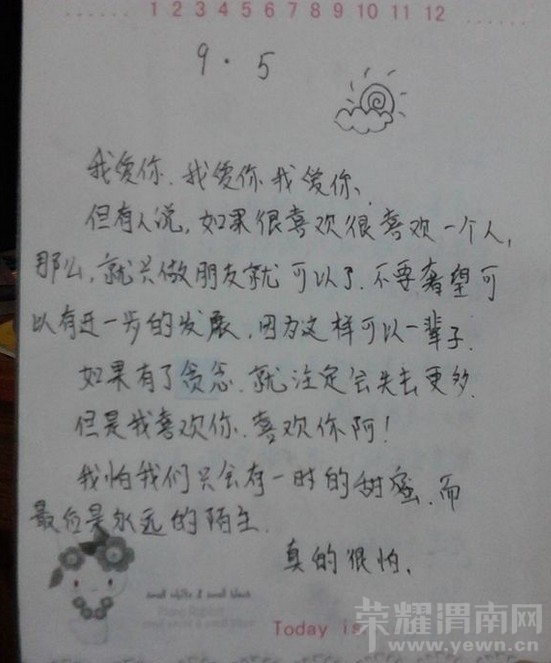 1 2 3 4 5 6 7 8 9 10 11 12
9.5
我爱你.我爱你.我爱你.
但有人说,如果很喜欢很喜欢一个人,
那么,就只做朋友就可以了.不要奢望可
以有进一步的发展,因为这样可以一辈子.
如果有了贪念.就注定会失去更多.
但是我喜欢你.喜欢你阿!
我怕我们只会有一时的甜蜜.而
最后是永远的陌生.
真的很怕.
small white & small black
Today is
荣耀渭南网
www.yewn.cn